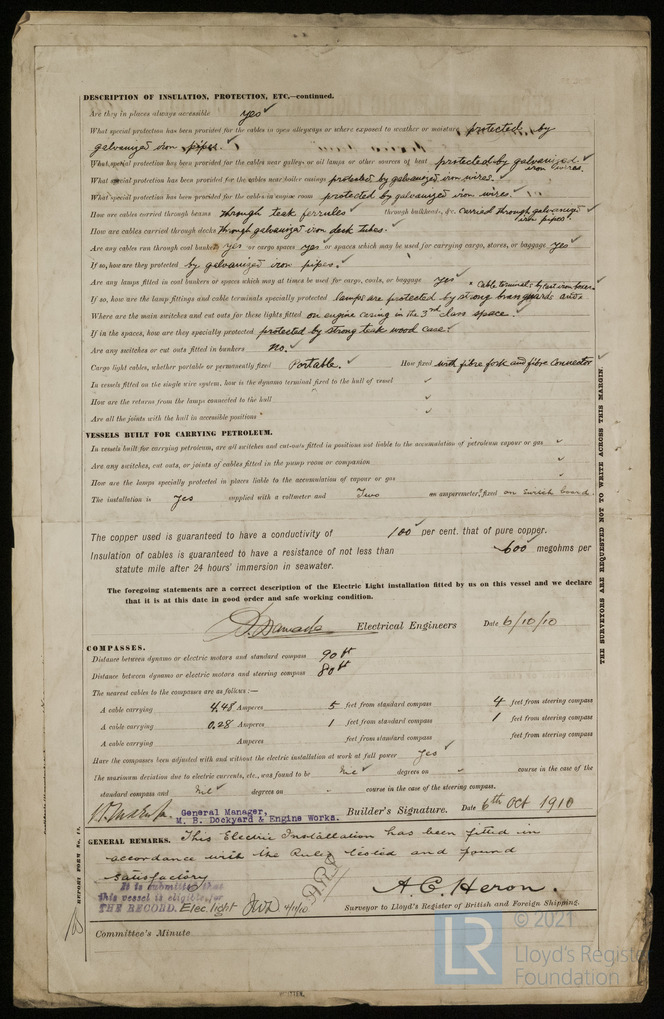 DESCRIPTION OF INSULATION, PROTECTION, ETC.—continued.
Are they in places always accessible yes ✓
What special protection has been provided for the cables in open alleyways or where exposed to weather or moisture protected by
galvanized iron pipes. ✓
What special protection has been provided for the cables near galleys or oil lamps or other sources of heat protected by galvanized ✓
iron wires.
What special protection has been provided for the cables near boiler casings protected by galvanized iron wires. ✓
What special protection has been provided for the cables in engine room protected by galvanized iron wire. ✓
How are cables carried through beams through teak ferrules ✓ through bulkheads, &c. carried through galvanized ✓
iron pipes.
How are cables carried through decks through galvanized iron deck tubes. ✓
Are any cables run through coal bunkers yes or cargo spaces yes or spaces which may be used for carrying cargo, stores, or baggage yes ✓
If so, how are they protected by galvanized iron pipes. ✓
Are any lamps fitted in coal bunkers or spaces which may at times be used for cargo, coals, or baggage yes ✓ * cable terminals by cast iron boxes ✓
If so, how are the lamp fittings and cable terminals specially protected lamps are protected by strong brass guards and *
Where are the main switches and cut outs for these lights fitted on engine casing in the 3rd class space. ✓
If in the spaces, how are they specially protected protected by strong teak wood case. ✓
Are any switches or cut outs fitted in bunkers no. ✓
Cargo light cables, whether portable or permanently fixed Portable. ✓ How fixed with fibre fork and fibre connector ✓
In vessels fitted on the single wire system, how is the dynamo terminal fixed to the hull of vessel ✓
How are the returns from the lamps connected to the hull ✓
Are all the joints with the hull in accessible positions ✓
VESSELS BUILT FOR CARRYING PETROLEUM.
In vessels built for carrying petroleum, are all switches and cut-outs fitted in positions not liable to the accumulation of petroleum vapour or gas ✓
Are any switches, cut outs, or joints of cables fitted in the pump room or companion ✓
How are the lamps specially protected in places liable to the accumulation of vapour or gas ✓
The installation is Yes supplied with a voltmeter and Two an amperemeter, fixed on switch board
The copper used is guaranteed to have a conductivity of 100 ✓ per cent. that of pure copper.
Insulation of cables is guaranteed to have a resistance of not less than 600 megohms per
statute mile after 24 hours' immersion in seawater.
The foregoing statements are a correct description of the Electric Light installation fitted by us on this vessel and we declare
that it is at this date in good order and safe working condition.
Electrical Engineers Date 6/10/10
COMPASSES.
Distance between dynamo or electric motors and standard compass 90 ft
Distance between dynamo or electric motors and steering compass 80 ft
The nearest cables to the compasses are as follows:—
A cable carrying 4.48 Amperes 5 feet from standard compass 4 feet from steering compass
A cable carrying 0.28 Amperes 1 feet from standard compass 1 feet from steering compass
A cable carrying Amperes feet from standard compass feet from steering compass
Have the compasses been adjusted with and without the electric installation at work at full power Yes ✓
The maximum deviation due to electric currents, etc., was found to be Nil ✓ degrees on " course in the case of the
standard compass and Nil ✓ degrees on " course in the case of the steering compass.
General Manager,
M. B. Dockyard & Engine Works. Builder's Signature. Date 6th Oct 1910
GENERAL REMARKS. This Electric Installation has been fitted in
accordance with the Rules tested and found
satisfactory
It is submitted that
this vessel is eligible for
THE RECORD. Elec. light 4/11/10
A. C. Heron.
Surveyor to Lloyd's Register of British and Foreign Shipping.
Committee's Minute
THE SURVEYORS ARE REQUESTED NOT TO WRITE ACROSS THIS MARGIN.
© 2021
LR
Lloyd's Register
Foundation